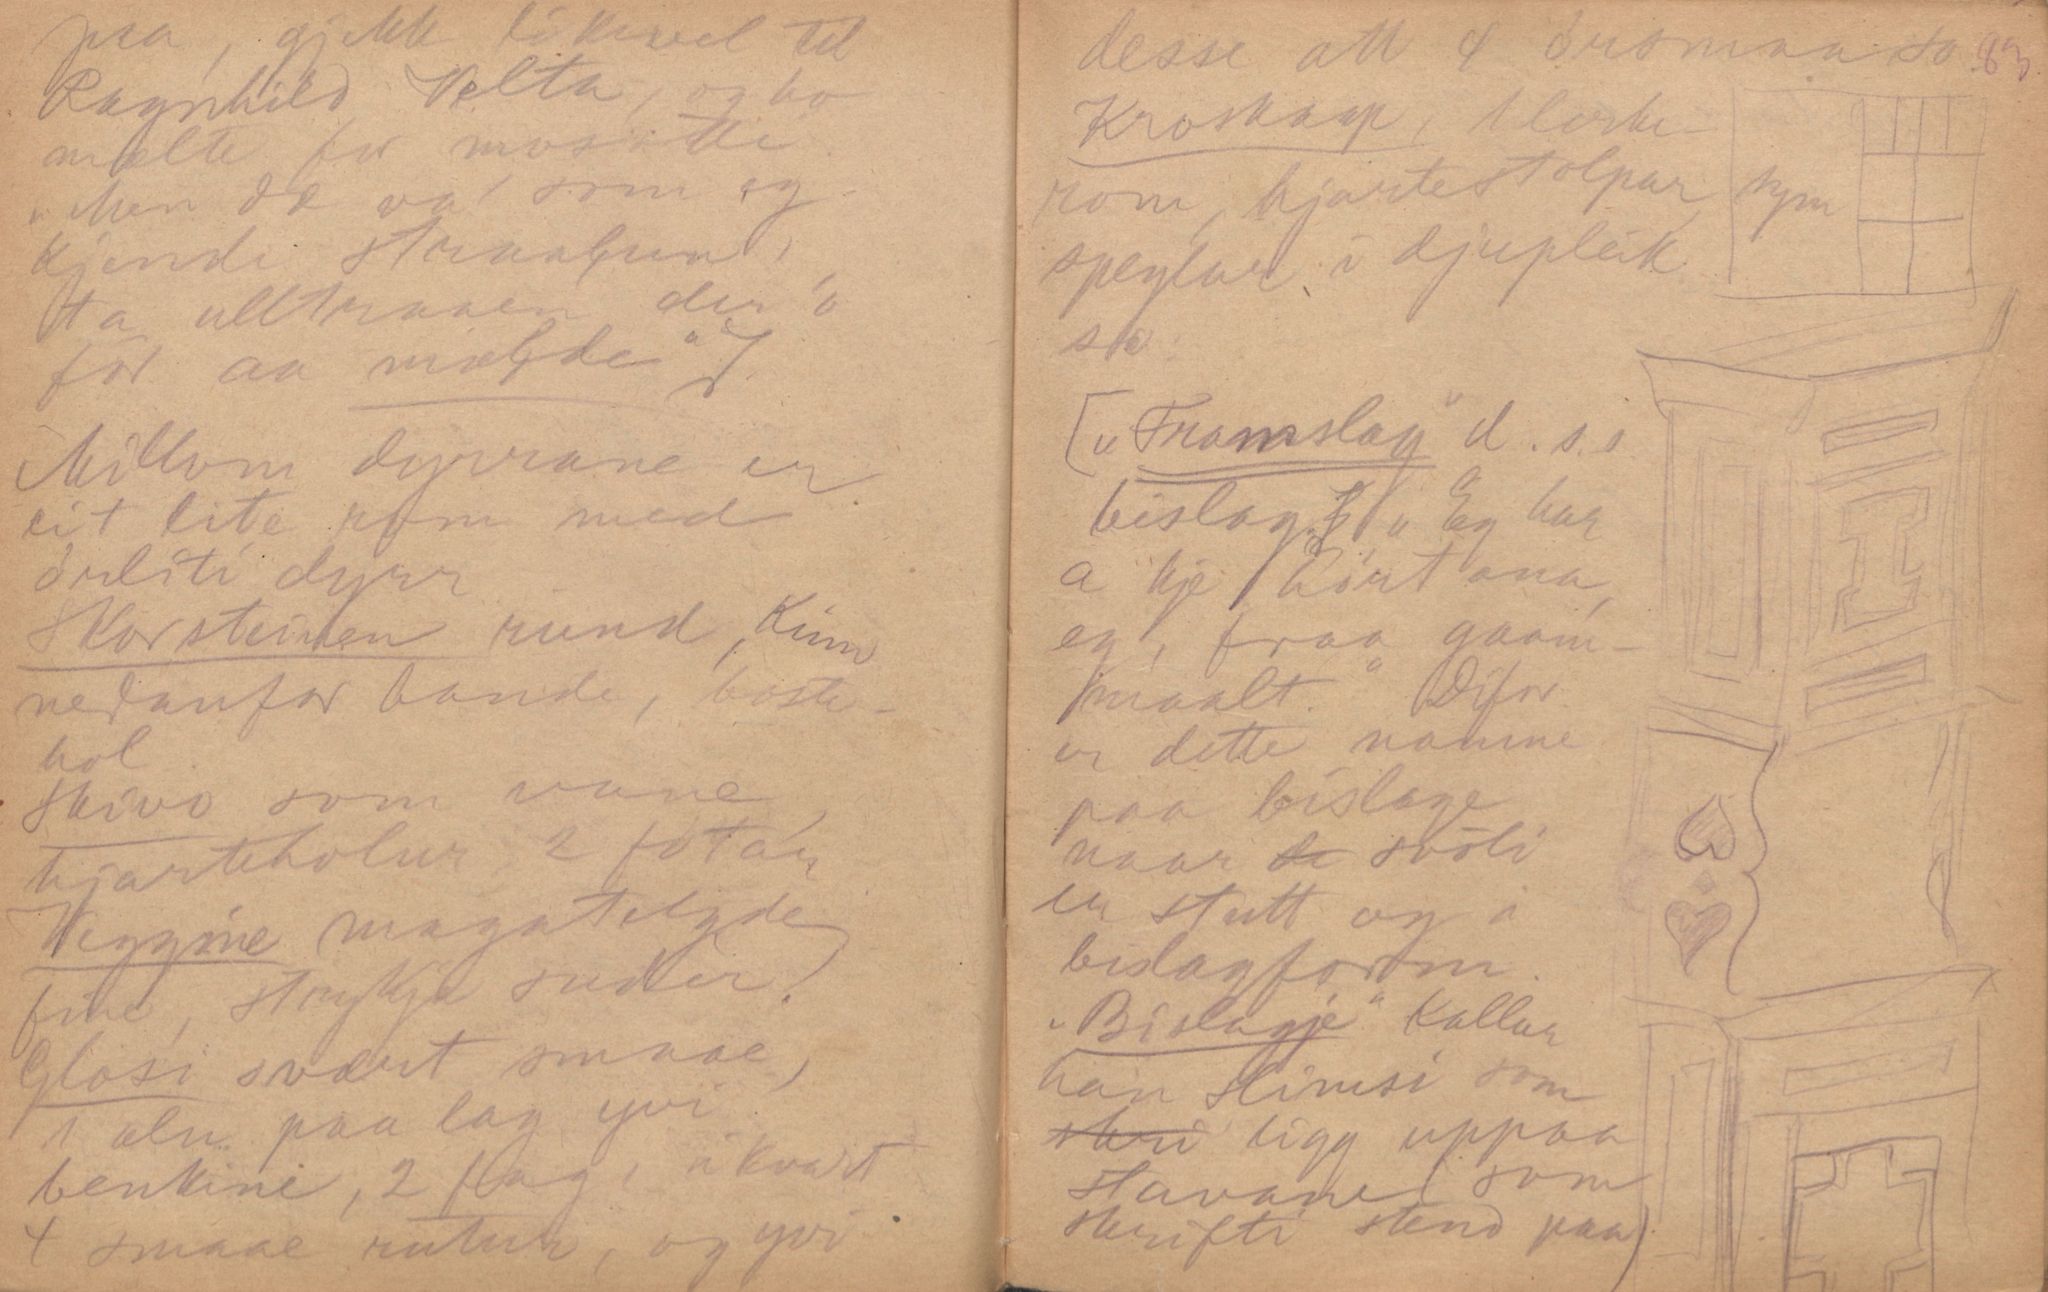 paa, gjekk likevel til
Ragnhild Velta, og ho
mælte for mosótti.
"Men dæ va' som eg
kjende straalun'
ta ulltraaen der'o
for aa mælde"]
Millom dyrrane er
eit lite rom med
örliti dyrr
Skorsteinen rund, Kinn
nedanfor bande, boste-
hol
Skivo som vane,
hjarteholur, 2 fotar
Veggine magatelgde,
fine, strykje suder!
Glasi svært smaae,
1 aln paa lag yvi
benkine, 2 fag, i kvart
4 smaae rutur, og yvi
desse att 4 örsmaa so 83
Kroskaap, 1 loske-
rom, hjartestolpar, sym
speglar i djupleik
so:
["Framslag" d.s.s.
bislag.] "Eg har
a kje hört ana,
eg, fraa gaam-
maalt." Difor
er dette namne
paa bislage
naar de svöli
er stutt og i
bislagform.
"Bislagje" kallar
han Himsi som
skri ligg uppaa
stavane (som
skrifti stend paa)